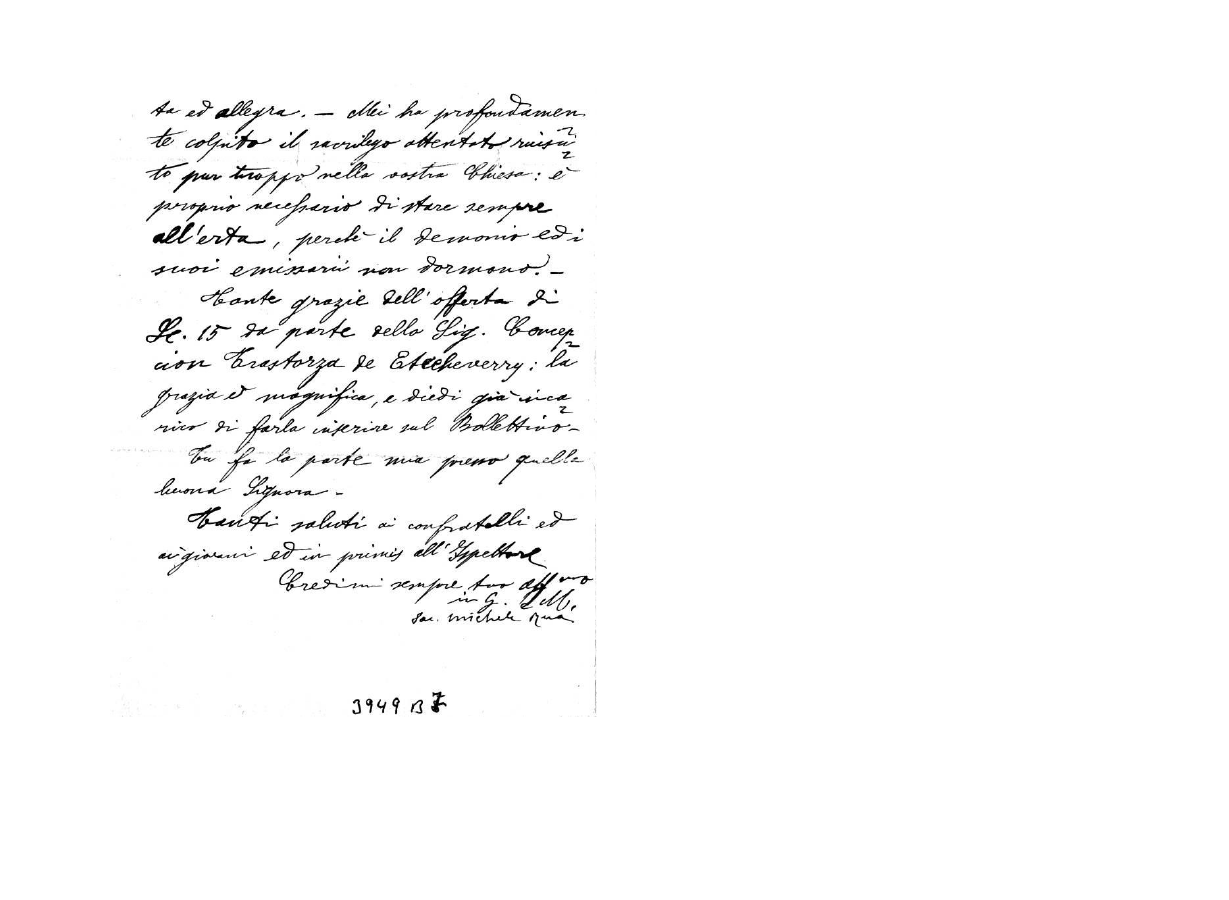 ta ed allegra. — Mei ha profondamen
te colpito il sacrilego attentato riusci
to pur troppo nella vostra Chiesa: è
proprio necessario di stare sempre
all'erta, perchè il demonio ed i
suoi emissarii non dormono. —
Tante grazie dell'offerta di
L. 15 da parte della Sig. Concep
cion Trastorza de Etcheverry: la
grazia è magnifica, e diedi già inca
rico di farla inserire sul Bollettino —
Tu fa la parte mia presso quella
buona Signora —
Tanti saluti ai confratelli ed
ai giovani ed in primis all'Ispettore
Credimi sempre tuo aff mo
in G. e M.
Sac. Michele Rua
3949 B 7